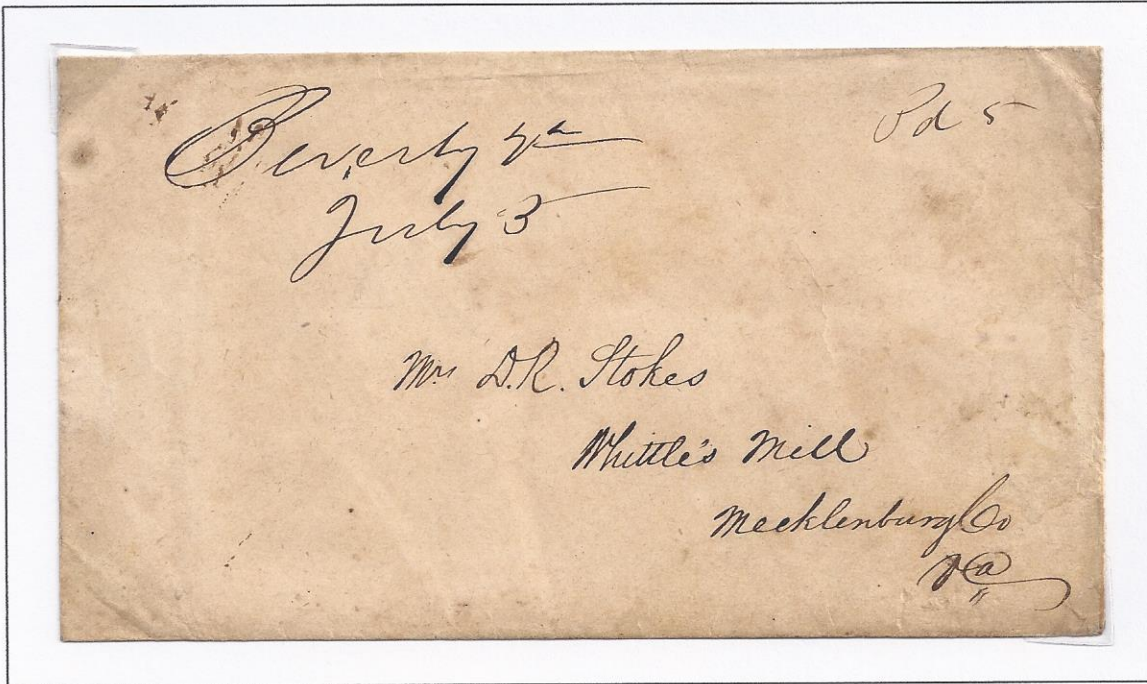 Beverly Va
Pd 5
July 3
Mrs D.R. Stokes
Whittle's Mill
Mecklenburg Co
Va